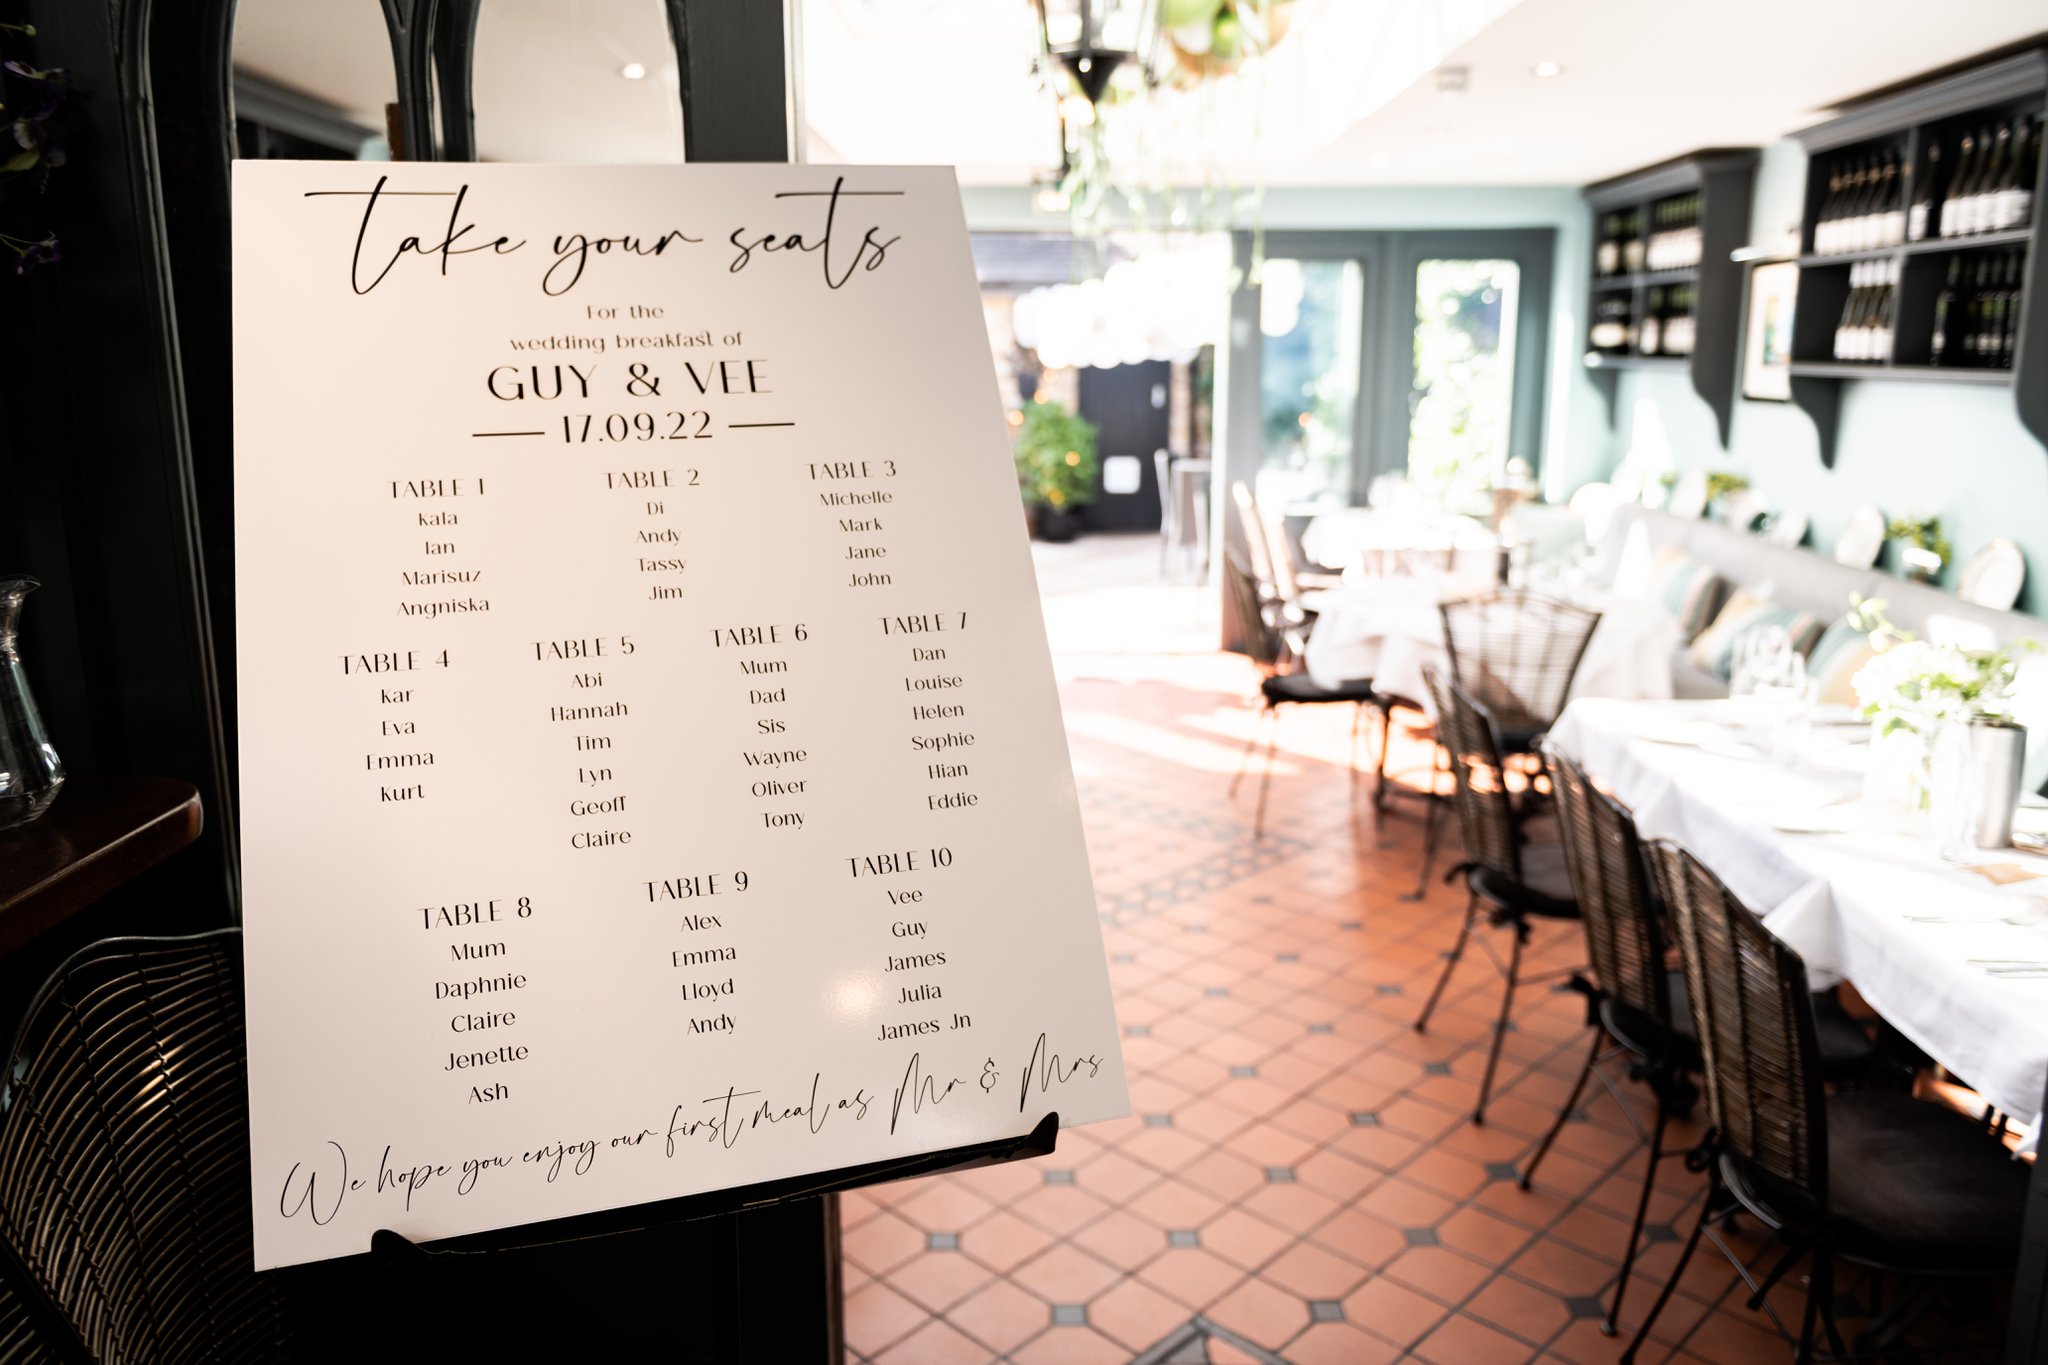 take your seats
For the
wedding breakfast of
GUY & VEE
17.09.22
TABLE 1
Kala
Ian
Marisuz
Angniska
TABLE 2
Di
Andy
Tassy
Jim
TABLE 3
Michelle
Mark
Jane
John
TABLE 4
Kar
Eva
Emma
Kurt
TABLE 5
Abi
Hannah
Tim
Lyn
Geoff
Claire
TABLE 6
Mum
Dad
Sis
Wayne
Oliver
Tony
TABLE 7
Dan
Louise
Helen
Sophie
Hian
Eddie
TABLE 8
Mum
Daphnie
Claire
Jenette
Ash
TABLE 9
Alex
Emma
Lloyd
Andy
TABLE 10
Vee
Guy
James
Julia
James Jn
We hope you enjoy our first meal as Mr & Mrs